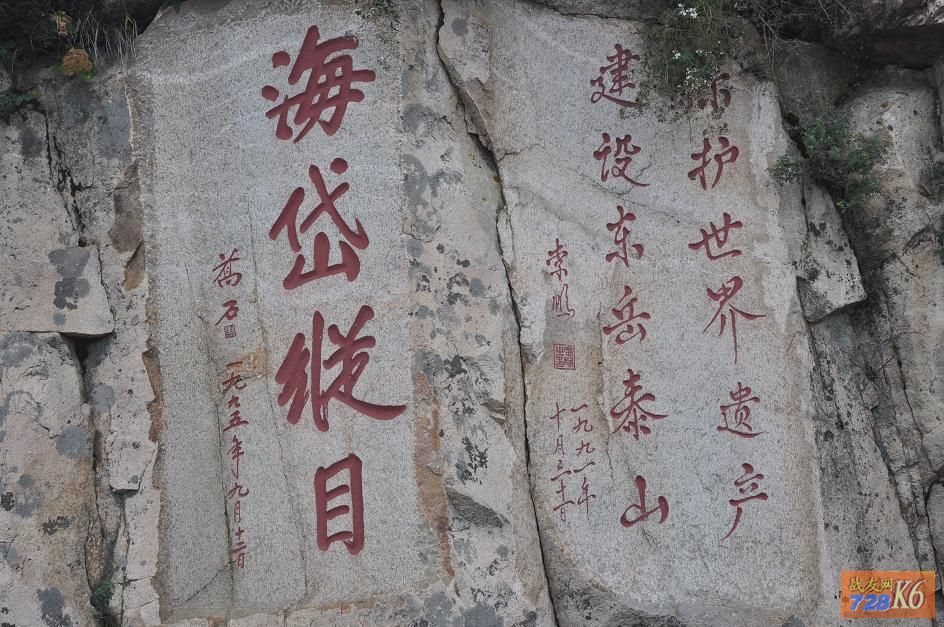 保护世界遗产
建设东岳泰山
李鹏
一九九一年
十月
海岱縱目
萬石
一九九五年九月十二日
战友网
728K6